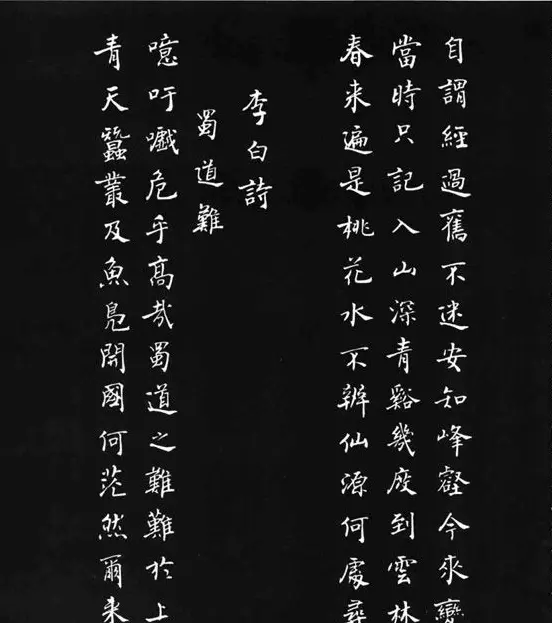 自謂經過舊不迷安知峰壑今來變
當時只記入山深青谿幾度到雲林
春来遍是桃花水不辨仙源何處尋
李白詩
蜀道難
噫吁嚱危乎高哉蜀道之難難於上
青天蠶叢及魚鳧開國何茫然爾来